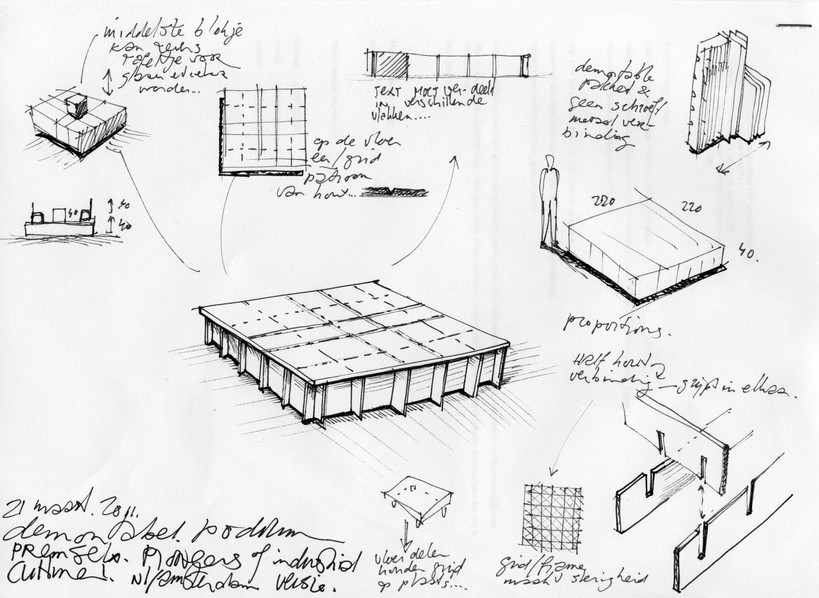 middelste blokje
kan zelfs
tafeltje voor
glaasje
worden...
40
40
40
op de vloer
een grid
patroon
van hout...
TEXT MOET ver-deeld
in verschillende
vlakken....
demontable
&
geen schroef/
ver-
binding
220
220
40.
proportions.
Half hout
verbinding - grijpt in elkaar.
21 maart. 2011.
demontabel podium
of industrial
N1/amsterdam versie.
vloer delen
houden grid
op plaats...
grid/frame
maakt stevigheid